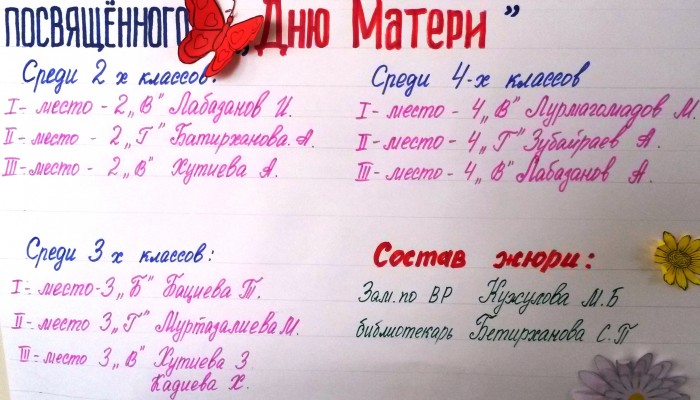 ПОСВЯЩЁННОГО „Дню Матери”
Среди 2 х классов:
I - место - 2 „В” Лабазанов И.
II - место - 2 „Г” Батирханова. А.
III - место - 2 „В” Хутиева А.
Среди 4-х классов
I - место - 4 „В” Лурмагомадов М.
II - место - 4 „Г” Зубайраев А.
III - место - 4 „В” Лабазанов А.
Среди 3 х классов:
I - место - 3 „Б” Бациева Т.
II - место 3 „Г” Муртазалиева М.
III - место 3 „В” Хутиева З
Кадиева Х.
Состав жюри:
Зам. по ВР Кужулова М.Б
библиотекарь Бетирханова С.П